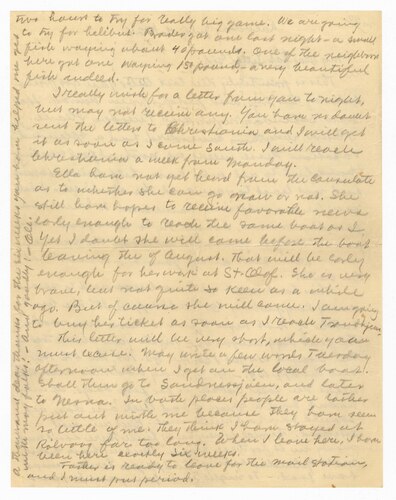 two hours to try for really big game. We are going
to try for halibut. Brother got one last night - a small
fish weighing about 40 pounds. One of the neighbors
here got one weighing 150 pound - a very beautiful
fish indeed.
I really wish for a letter from you to-night,
but may not receive any. You have no doubt
sent the letters to Christiania and I will get
it as soon as I come South. I will reach
Christiania a week from Monday.
Ella has not yet heard from the consulate
as to whether she can go or not. She
still has hopes to receive favorable news
early enough to reach the same boat as I.
Yet I doubt she will come before the boat
leaving the of August. That will be early
enough for her work at St. Olaf. She is very
brave, but not quite so keen as a while
ago. But of course she will come. I am going
to buy her ticket as soon as I reach
This letter will be very short, which you
must excuse. May write a few words Tuesday
afternoon when I get on the local boat.
Shall then go to Sandnessjøen, and later
to Nesna. In both places people are rather
put out with me because they have seen
so little of me. They think I have stayed at
far too long. When I leave here, I have
been here exactly six weeks.
Father is ready to leave for the mail station,
and I must put period.
A thousand dear thanks for the six weeks you have